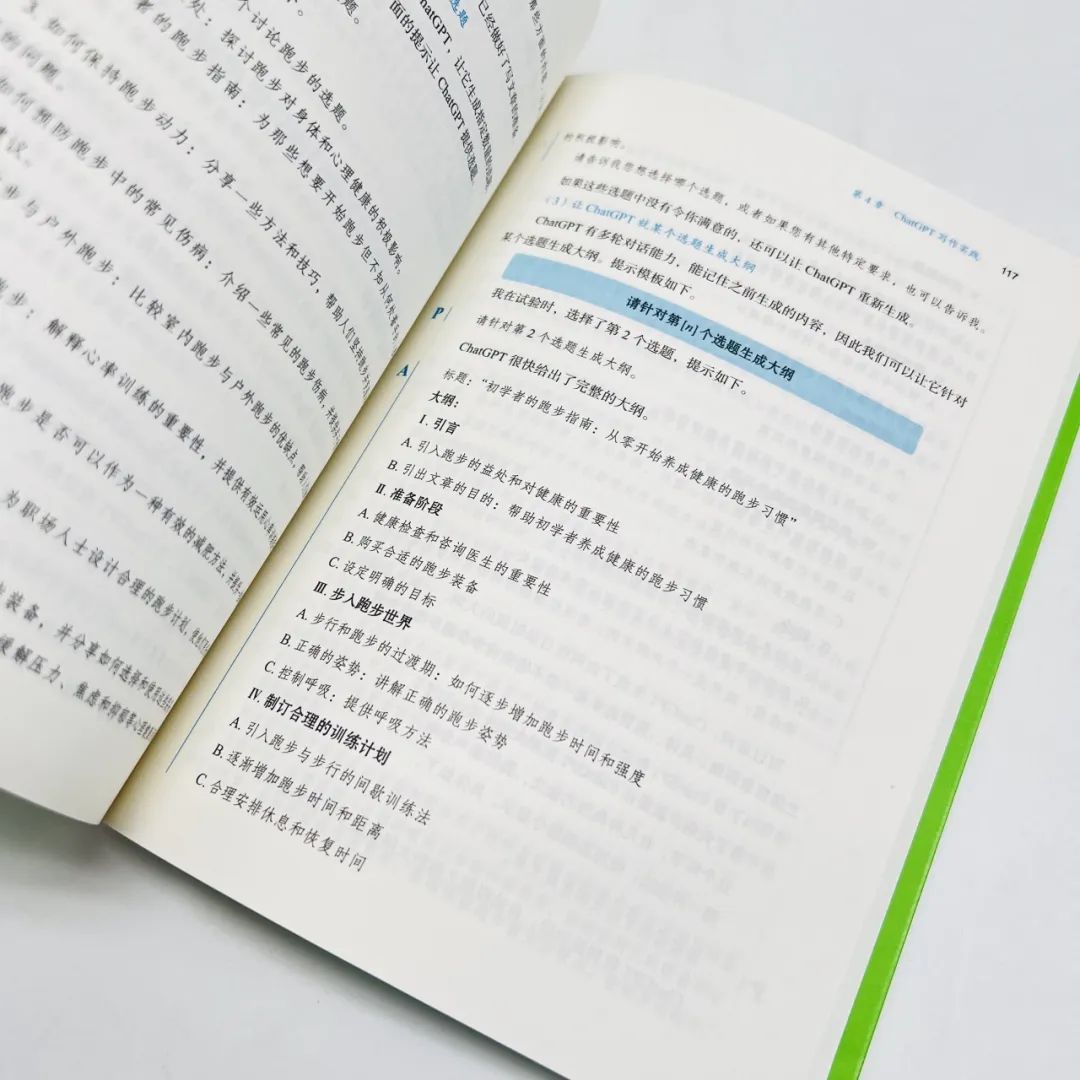 个讨论跑步的选题。
处：探讨跑步对身体和心理健康的积极影响。
者的跑步指南：为那些想要开始跑步但不知从何
如何保持跑步动力：分享一些方法和技巧，帮助人们
的问题。
如何预防跑步中的常见伤病：介绍一些常见的跑步伤病，
建议。
步与户外跑步：比较室内跑步与户外跑步的优缺点，
跑步：解释心率训练的重要性，并提供有效
跑步是否可以作为一种有效的减肥方法，
为职场人士设计合理的跑步计划，
装备，并分享如何选择和
缓解压力、焦虑和抑郁等心理
选题
已经做好了写文章的准备
ChatGPT，让它生成指定数量的选题
面的提示让 ChatGPT 提供选题
第 4 章 ChatGPT 写作实践
117
的积极影响。
请告诉我您想选择哪个选题，或者如果您有其他特定要求，也可以告诉我。
如果这些选题中没有令你满意的，还可以让 ChatGPT 重新生成。
（3）让 ChatGPT 就某个选题生成大纲
ChatGPT 有多轮对话能力，能记住之前生成的内容，因此我们可以让它针对
某个选题生成大纲。提示模板如下。
请针对第[n]个选题生成大纲
我在试验时，选择了第 2 个选题，提示如下。
P
请针对第 2 个选题生成大纲。
ChatGPT 很快给出了完整的大纲。
A
标题：“初学者的跑步指南：从零开始养成健康的跑步习惯”
大纲：
I. 引言
A. 引入跑步的益处和对健康的重要性
B. 引出文章的目的：帮助初学者养成健康的跑步习惯
II. 准备阶段
A. 健康检查和咨询医生的重要性
B. 购买合适的跑步装备
C. 设定明确的目标
III. 步入跑步世界
A. 步行和跑步的过渡期：如何逐步增加跑步时间和强度
B. 正确的姿势：讲解正确的跑步姿势
C. 控制呼吸：提供呼吸方法
IV. 制订合理的训练计划
A. 引入跑步与步行的间歇训练法
B. 逐渐增加跑步时间和距离
C. 合理安排休息和恢复时间